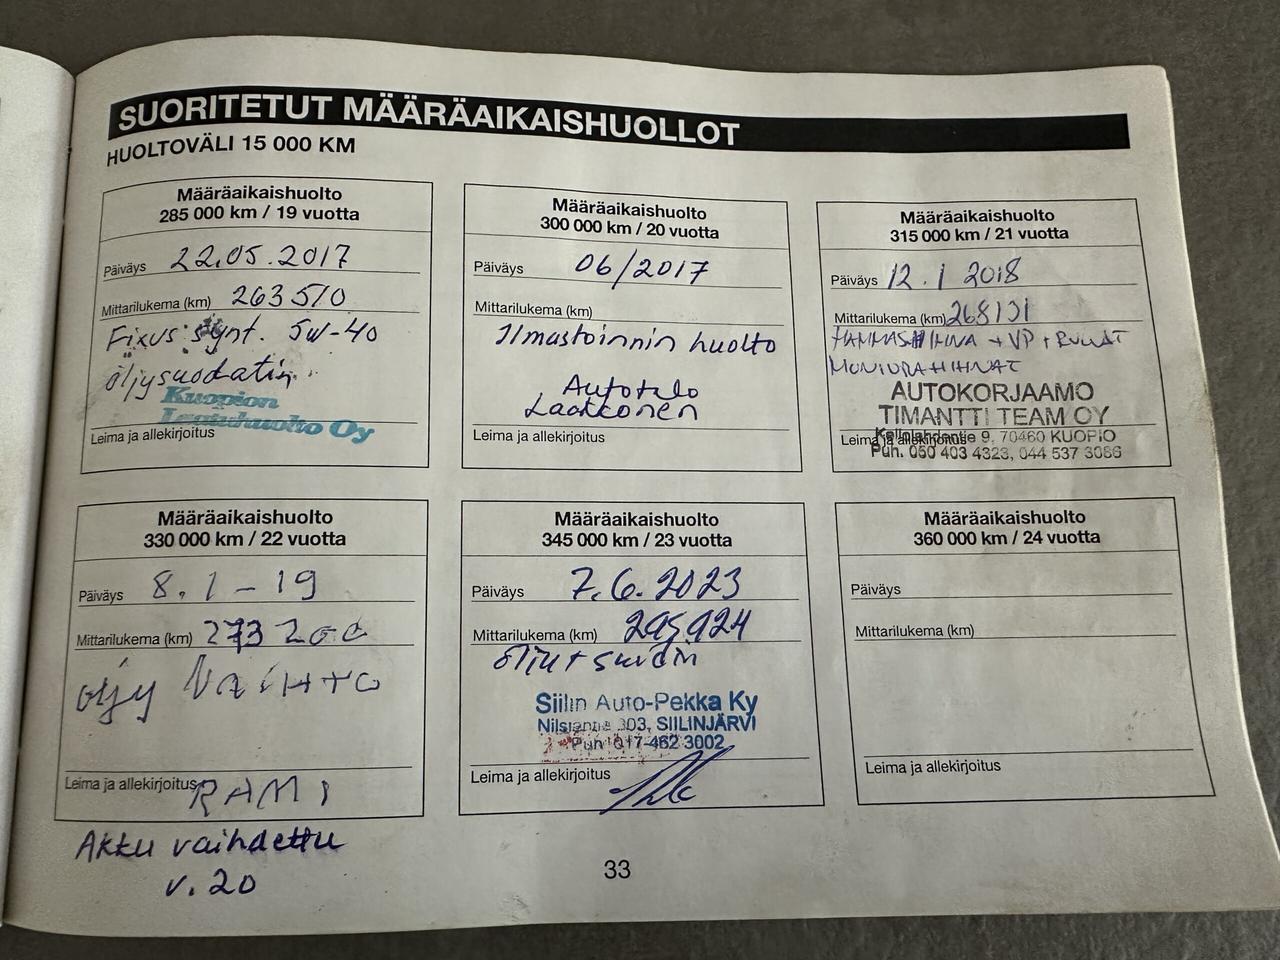 SUORITETUT MÄÄRÄAIKAISHUOLLOT
HUOLTOVÄLI 15 000 KM
Määräaikaishuolto
285 000 km / 19 vuotta
Päiväys 22.05.2017
Mittarilukema (km) 263510
Fixus synt. 5w-40
öljysuodatin
Kuopion
Laatuhuolto Oy
Leima ja allekirjoitus
Määräaikaishuolto
300 000 km / 20 vuotta
Päiväys 06/2017
Mittarilukema (km)
Ilmastoinnin huolto
Autotalo
Laakkonen
Leima ja allekirjoitus
Määräaikaishuolto
315 000 km / 21 vuotta
Päiväys 12.1 2018
Mittarilukema (km) 268131
HAMMASHIHNA + VP + RULLAT
MONIURAHIHNAT
AUTOKORJAAMO
TIMANTTI TEAM OY
9, 70460 KUOPIO
Leima ja allekirjoitus
Puh. 050 403 4323, 044 537 3086
Määräaikaishuolto
330 000 km / 22 vuotta
Päiväys 8.1-19
Mittarilukema (km) 273200
öljy VAIHTO
Leima ja allekirjoitus RAMI
Akku vaihdettu
v.20
Määräaikaishuolto
345 000 km / 23 vuotta
Päiväys 7.6.2023
Mittarilukema (km) 295924
öljyt + suodin
Siilin Auto-Pekka Ky
Nilsiäntie 303, SIILINJÄRVI
Puh 017-462 3002
Leima ja allekirjoitus
Määräaikaishuolto
360 000 km / 24 vuotta
Päiväys
Mittarilukema (km)
Leima ja allekirjoitus
33